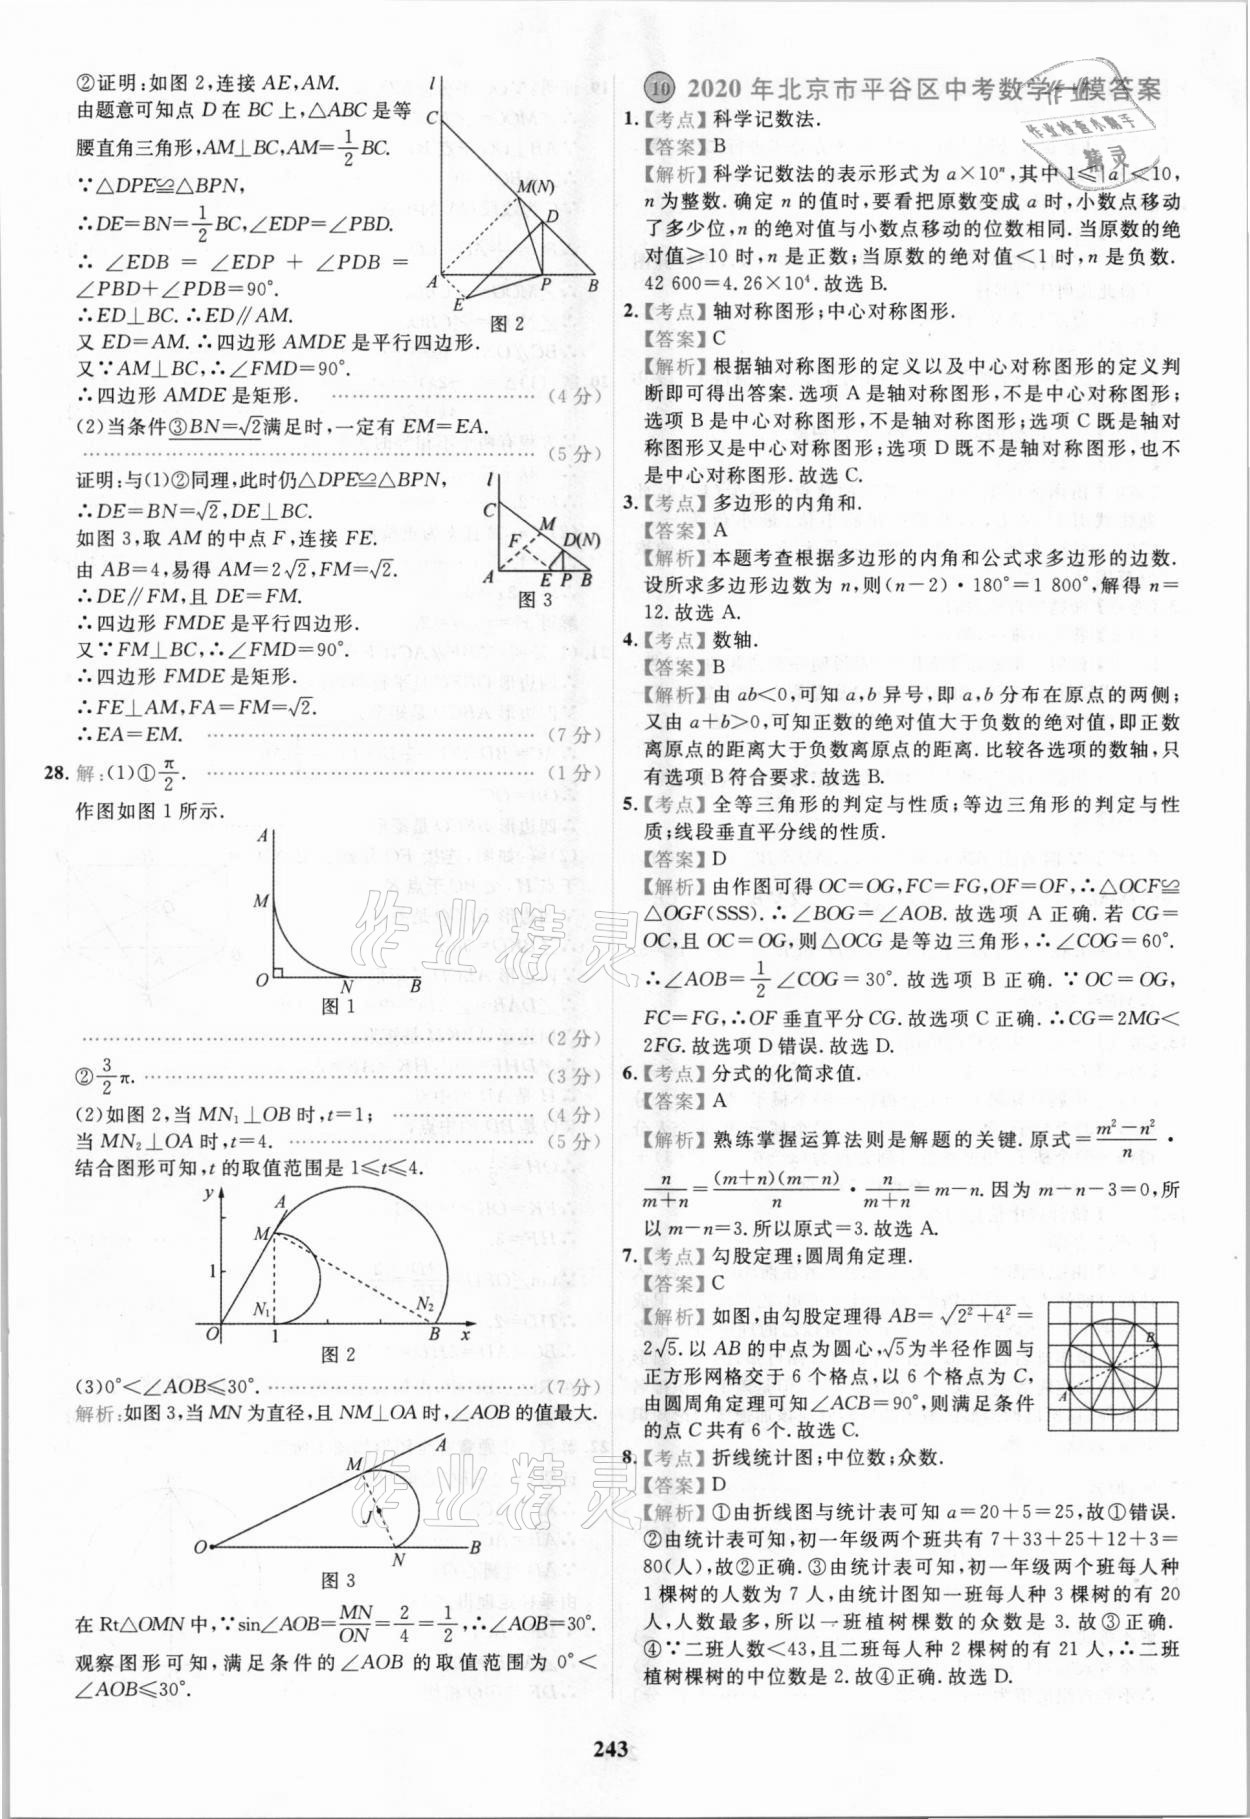 ②证明:如图 2,连接 AE,AM.
由题意可知点 D 在 BC 上,△ABC 是等
腰直角三角形,AM⊥BC,AM=1/2 BC.
∵△DPE≌△BPN,
∴DE=BN=1/2 BC,∠EDP=∠PBD.
∴ ∠EDB = ∠EDP + ∠PDB =
∠PBD+∠PDB=90°.
∴ED⊥BC.∴ED∥AM.
l
C
M(N)
D
A
P
B
E
图 2
又 ED=AM.∴四边形 AMDE 是平行四边形.
又∵AM⊥BC,∴∠FMD=90°.
∴四边形 AMDE 是矩形. ……………… (4 分)
(2)当条件③BN=√2满足时,一定有 EM=EA.
……………… (5 分)
证明:与(1)②同理,此时仍△DPE≌△BPN,
∴DE=BN=√2,DE⊥BC.
如图 3,取 AM 的中点 F,连接 FE.
由 AB=4,易得 AM=2√2,FM=√2.
∴DE∥FM,且 DE=FM.
l
C
M
F
D(N)
A
E P B
图 3
∴四边形 FMDE 是平行四边形.
又∵FM⊥BC,∴∠FMD=90°.
∴四边形 FMDE 是矩形.
∴FE⊥AM,FA=FM=√2.
∴EA=EM. ……………… (7 分)
28. 解:(1)①π/2. ……………… (1 分)
作图如图 1 所示.
A
M
O
N
B
图 1
……………… (2 分)
②3/2π. ……………… (3 分)
(2)如图 2,当 MN₁⊥OB 时,t=1; ……………… (4 分)
当 MN₂⊥OA 时,t=4. ……………… (5 分)
结合图形可知,t 的取值范围是 1≤t≤4.
y
A
M
1
N₁
N₂
O
1
B
x
图 2
(3)0°<∠AOB≤30°. ……………… (7 分)
解析:如图 3,当 MN 为直径,且 NM⊥OA 时,∠AOB 的值最大.
A
M
J
O
N
B
图 3
在 Rt△OMN 中,∵sin∠AOB=MN/ON=2/4=1/2,∴∠AOB=30°.
观察图形可知,满足条件的∠AOB 的取值范围为 0°<
∠AOB≤30°.
10 2020 年北京市平谷区中考数学一模答案
1.【考点】科学记数法.
【答案】B
【解析】科学记数法的表示形式为 a×10ⁿ,其中 1≤|a|<10,
n 为整数. 确定 n 的值时,要看把原数变成 a 时,小数点移动
了多少位,n 的绝对值与小数点移动的位数相同. 当原数的绝
对值≥10 时,n 是正数;当原数的绝对值<1 时,n 是负数.
42 600=4.26×10⁴. 故选 B.
2.【考点】轴对称图形;中心对称图形.
【答案】C
【解析】根据轴对称图形的定义以及中心对称图形的定义判
断即可得出答案. 选项 A 是轴对称图形,不是中心对称图形;
选项 B 是中心对称图形,不是轴对称图形;选项 C 既是轴对
称图形又是中心对称图形;选项 D 既不是轴对称图形,也不
是中心对称图形. 故选 C.
3.【考点】多边形的内角和.
【答案】A
【解析】本题考查根据多边形的内角和公式求多边形的边数.
设所求多边形边数为 n,则(n-2)·180°=1 800°,解得 n=
12. 故选 A.
4.【考点】数轴.
【答案】B
【解析】由 ab<0,可知 a,b 异号,即 a,b 分布在原点的两侧;
又由 a+b>0,可知正数的绝对值大于负数的绝对值,即正数
离原点的距离大于负数离原点的距离. 比较各选项的数轴,只
有选项 B 符合要求. 故选 B.
5.【考点】全等三角形的判定与性质;等边三角形的判定与性
质;线段垂直平分线的性质.
【答案】D
【解析】由作图可得 OC=OG,FC=FG,OF=OF,∴△OCF≌
△OGF(SSS).∴∠BOG=∠AOB. 故选项 A 正确. 若 CG=
OC,且 OC=OG,则△OCG 是等边三角形,∴∠COG=60°.
∴∠AOB=1/2∠COG=30°. 故选项 B 正确. ∵OC=OG,
FC=FG,∴OF 垂直平分 CG. 故选项 C 正确. ∴CG=2MG<
2FG. 故选项 D 错误. 故选 D.
6.【考点】分式的化简求值.
【答案】A
【解析】熟练掌握运算法则是解题的关键. 原式=(m²-n²)/n ·
n/(m+n)=(m+n)(m-n)/n · n/(m+n)=m-n. 因为 m-n-3=0,所
以 m-n=3. 所以原式=3. 故选 A.
7.【考点】勾股定理;圆周角定理.
【答案】C
【解析】如图,由勾股定理得 AB=√(2²+4²)=
2√5. 以 AB 的中点为圆心,√5为半径作圆与
正方形网格交于 6 个格点,以 6 个格点为 C,
由圆周角定理可知∠ACB=90°,则满足条件
的点 C 共有 6 个. 故选 C.
B
A
8.【考点】折线统计图;中位数;众数.
【答案】D
【解析】①由折线图与统计表可知 a=20+5=25,故①错误.
②由统计表可知,初一年级两个班共有 7+33+25+12+3=
80(人),故②正确. ③由统计表可知,初一年级两个班每人种
1 棵树的人数为 7 人,由统计图知一班每人种 3 棵树的有 20
人,人数最多,所以一班植树棵数的众数是 3. 故③正确.
④∵二班人数<43,且二班每人种 2 棵树的有 21 人,∴二班
植树棵树的中位数是 2. 故④正确. 故选 D.
作业检查小助手
精灵
作业精灵
作业精灵
243